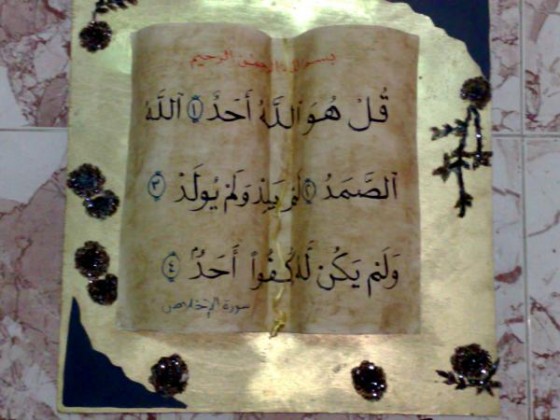 بسم الله الرحمن الرحيم
قُلْ هُوَ ٱللَّهُ أَحَدٌ ١ ٱللَّهُ
ٱلصَّمَدُ ٢ لَمْ يَلِدْ وَلَمْ يُولَدْ ٣
وَلَمْ يَكُن لَّهُ كُفُوًا أَحَدٌ ٤
سورة الإخلاص